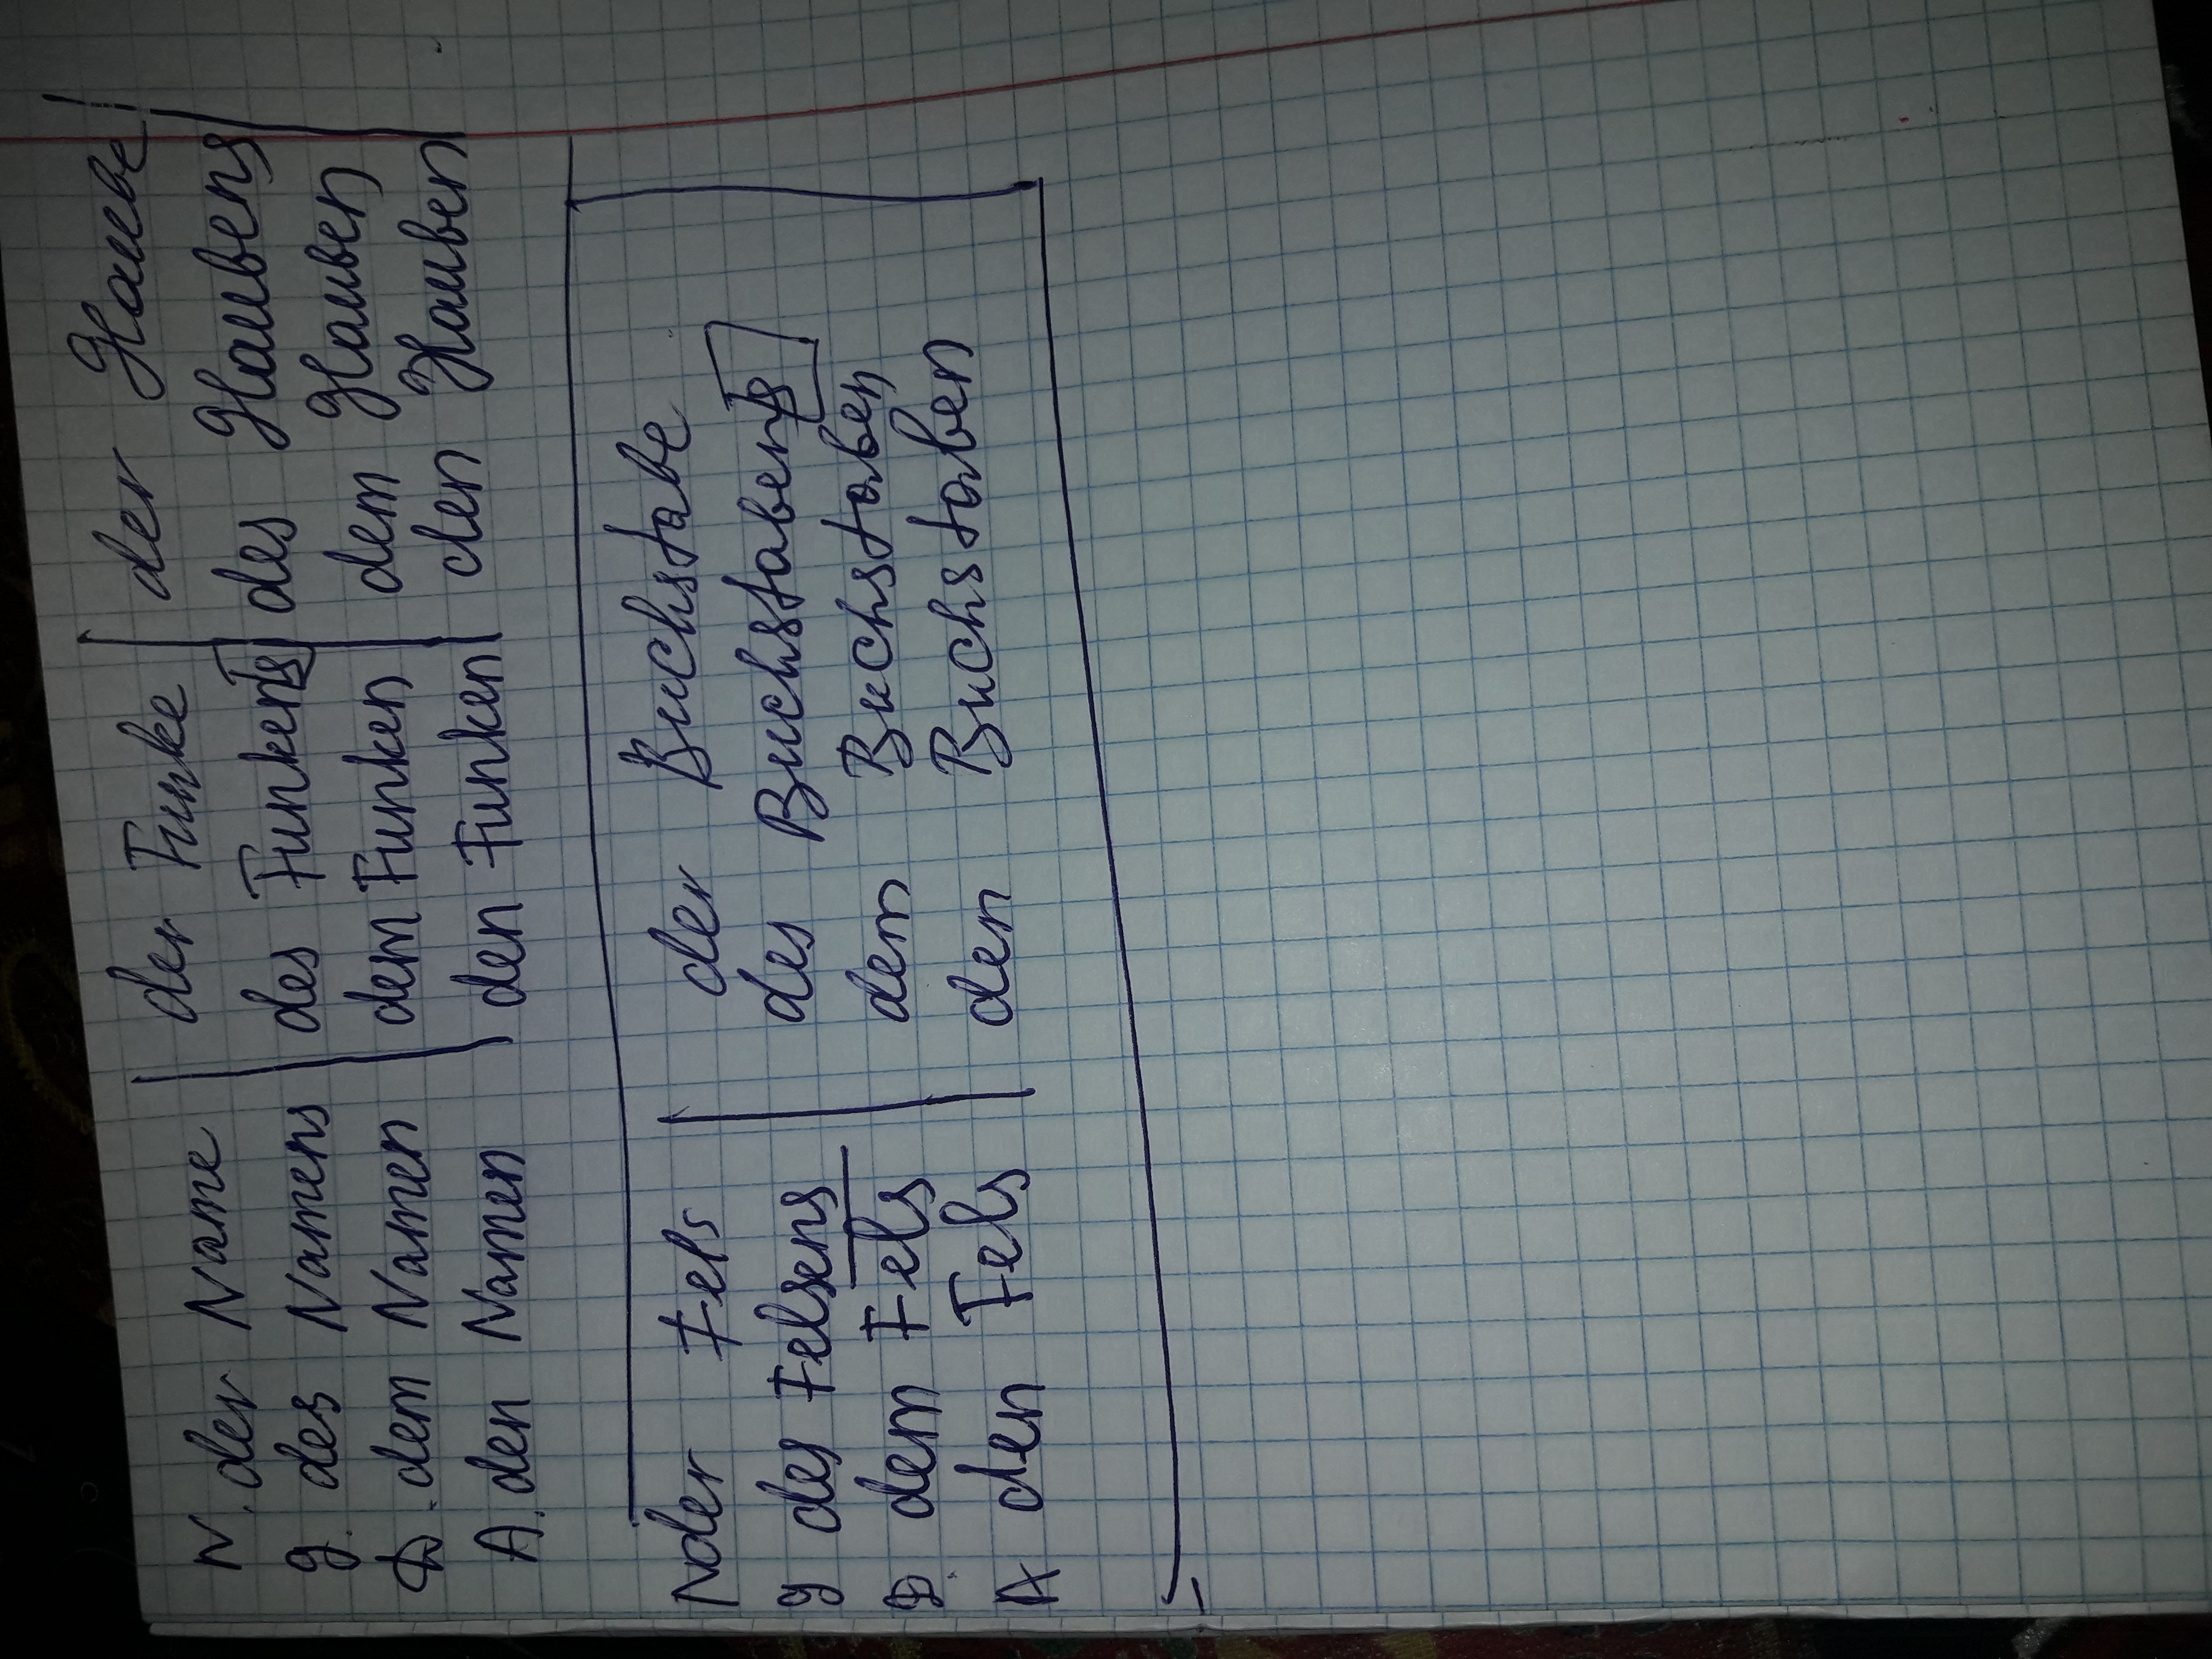 N. der Name | der Funke | der Haube
G. des Namens | des Funkens | des Haubens
D. dem Namen | dem Funken | dem Hauben
A. den Namen | den Funken | den Hauben
N der Fels | der Buchstabe
G des Felsens | des Buchstabens
D. dem Fels | dem Buchstaben
A den Fels | den Buchstaben